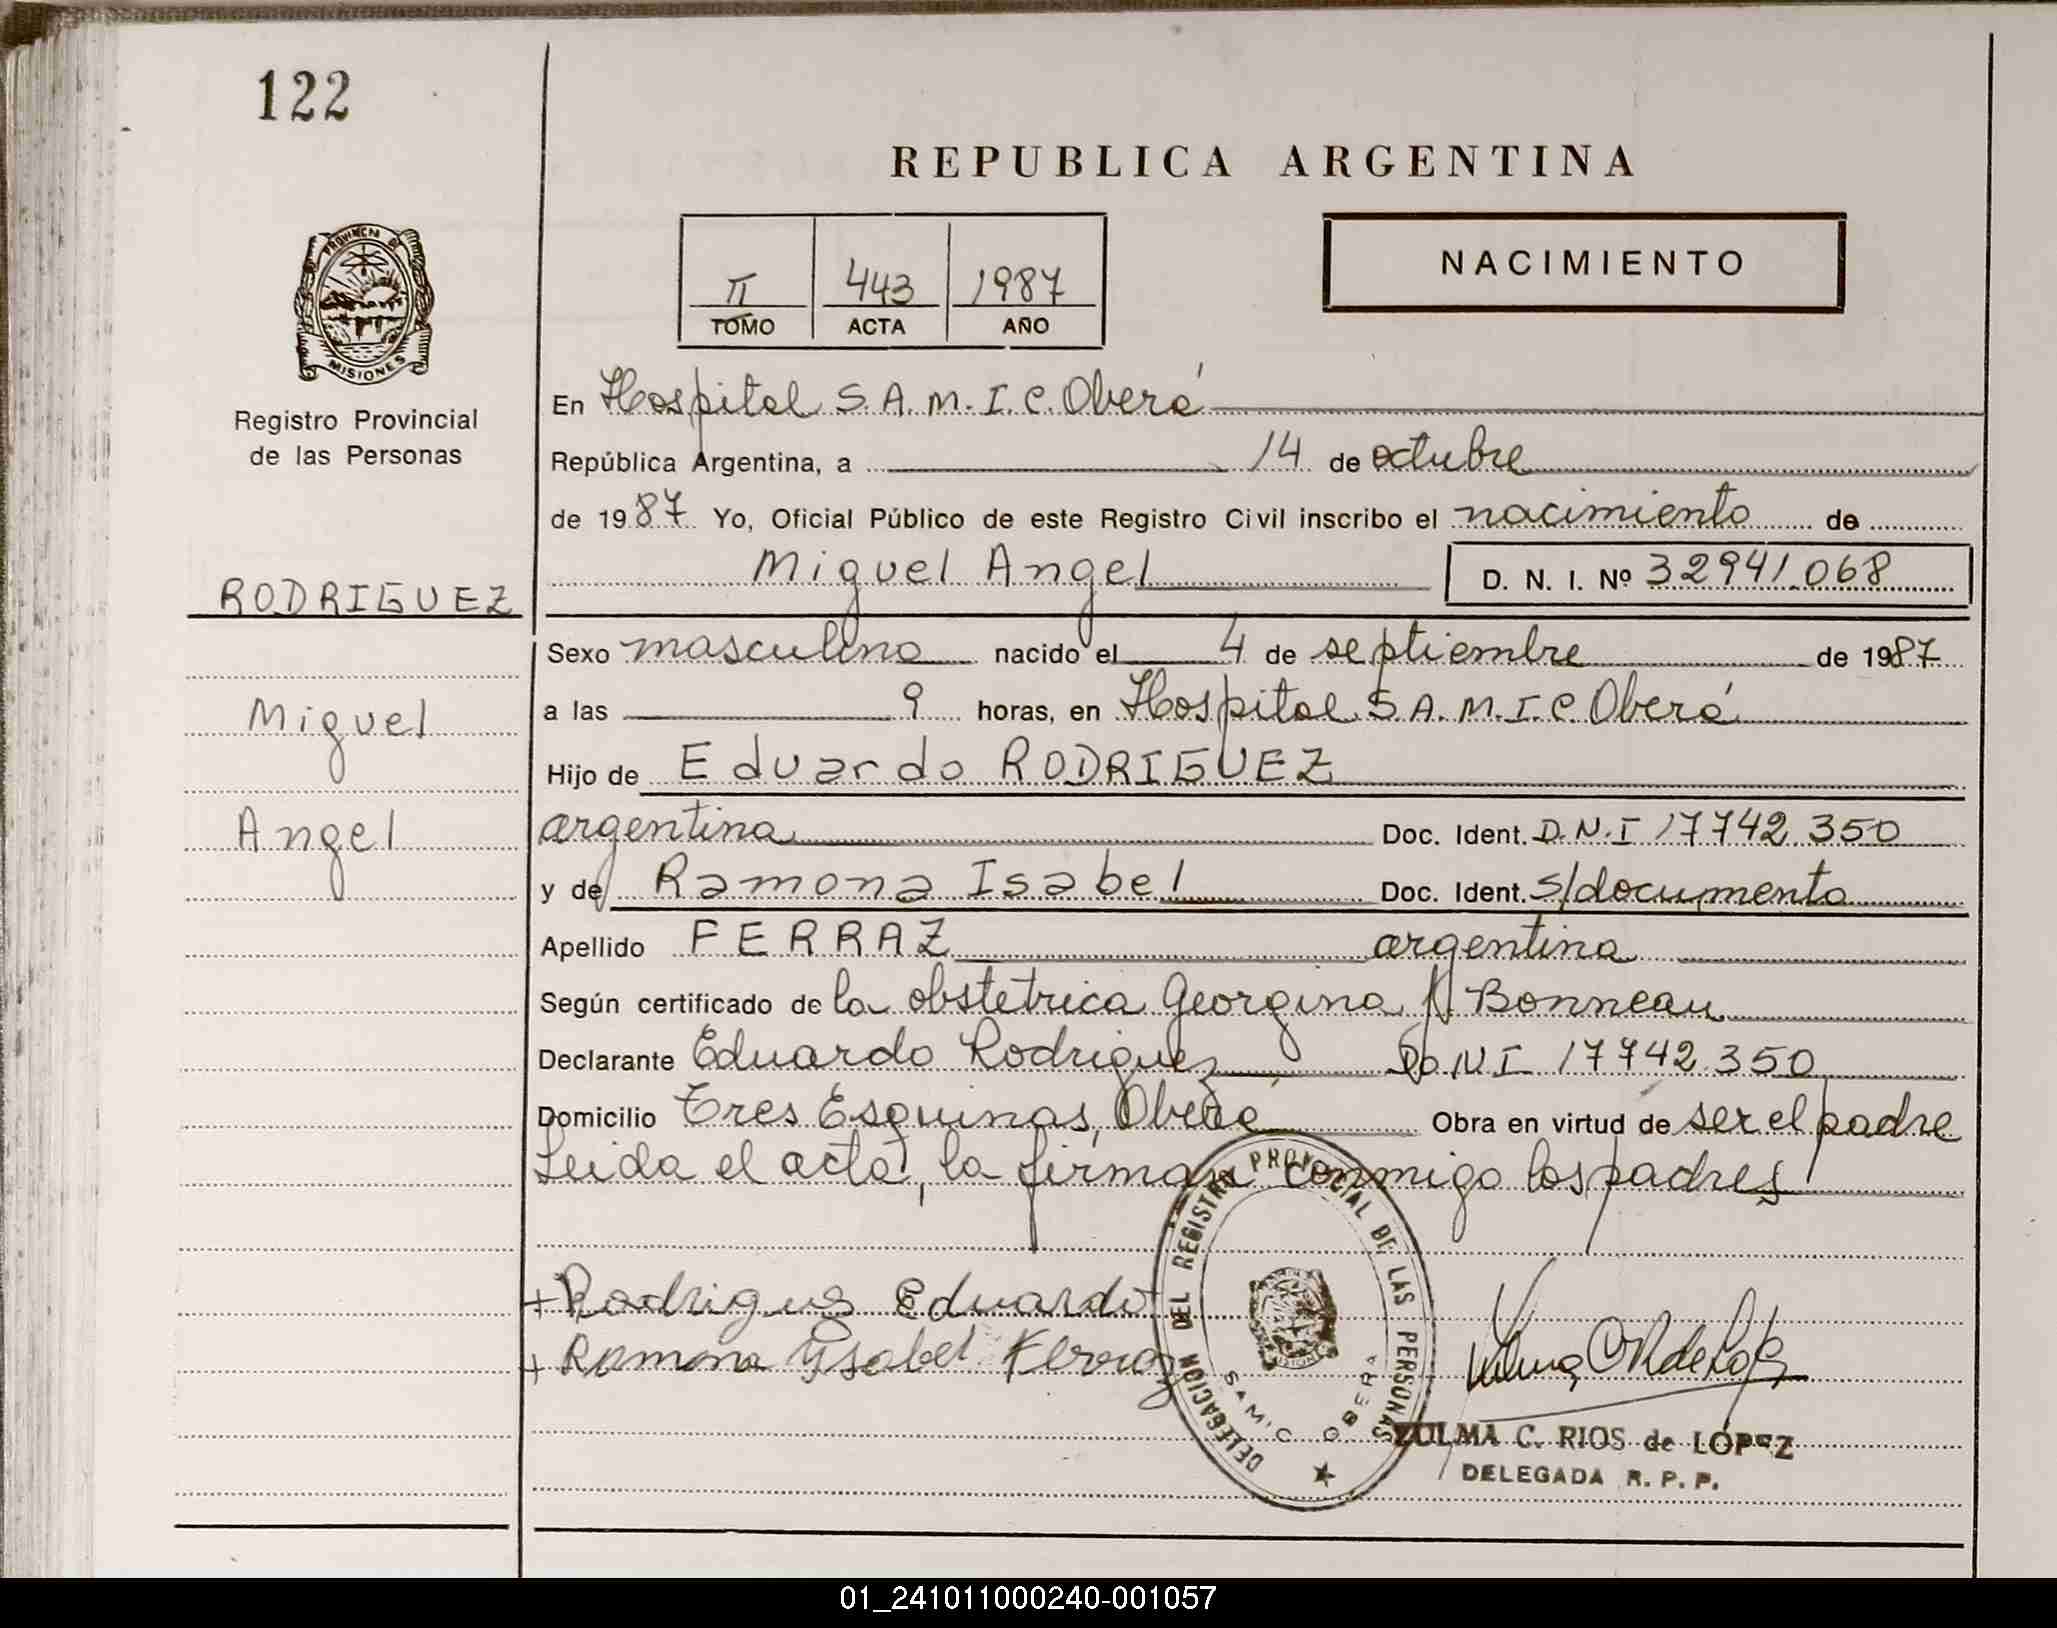 122
REPUBLICA ARGENTINA
II 443 1987
TOMO ACTA AÑO
NACIMIENTO
PROVINCIA DE
MISIONES
Registro Provincial
de las Personas
En Hospital S.A.M.I.C. Oberá
República Argentina, a 14 de octubre
de 1987 Yo, Oficial Público de este Registro Civil inscribo el nacimiento de
Miguel Angel D. N. I. Nº 32941.068
RODRIGUEZ
Miguel
Angel
Sexo masculino nacido el 4 de septiembre de 1987
a las 9 horas, en Hospital S.A.M.I.C. Oberá
Hijo de Eduardo RODRIGUEZ
argentina Doc. Ident. D.N.I 17742.350
y de Ramona Isabel Doc. Ident. s/documento
Apellido FERRAZ argentina
Según certificado de la obstetrica Georgina Bonneau
Declarante Eduardo Rodriguez D.N.I 17742.350
Domicilio Tres Esquinas, Oberá Obra en virtud de ser el padre
Leida el acta, la firman conmigo los padres
+ Rodrigues Eduardo
+ Ramona Ysabel Ferraz
DELEGACION DEL REGISTRO PROVINCIAL DE LAS PERSONAS
SAMIC OBERA
ZULMA C. RIOS de LÓPEZ
DELEGADA R. P. P.
01_241011000240-001057